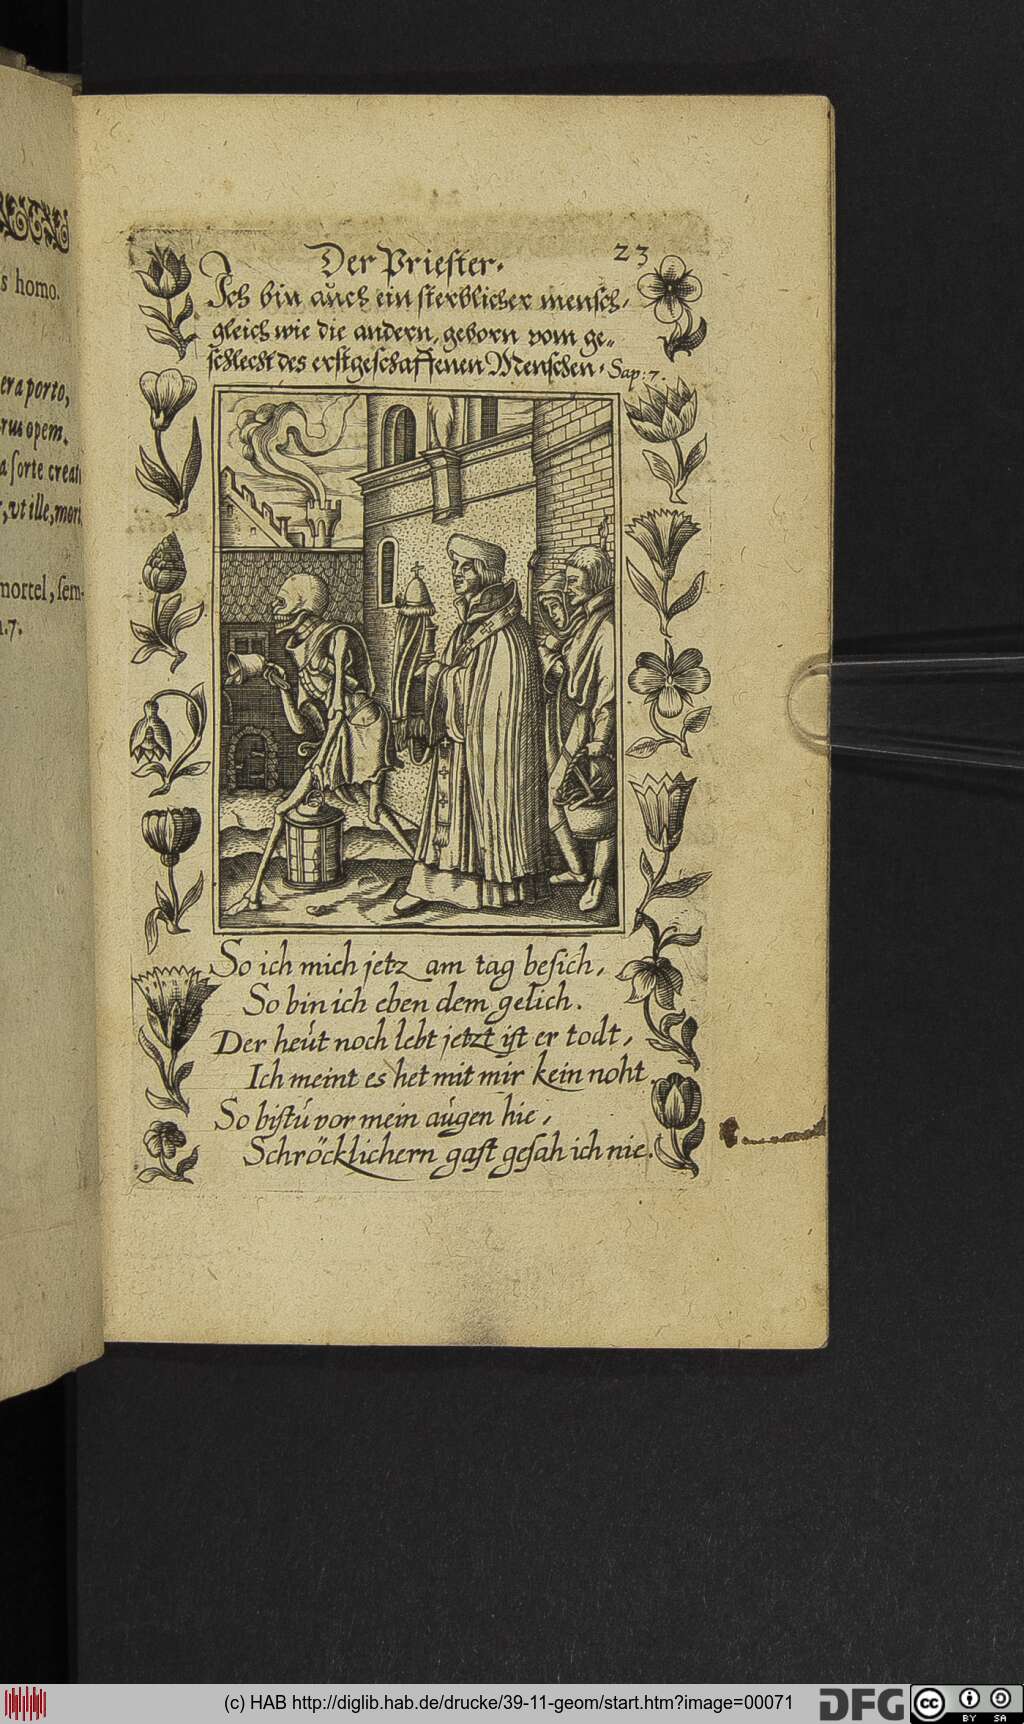 s homo.
era porto,
rus opem.
a sorte creat
, ut ille, mori
mortel, sem-
.7.
Der Priester. 23
Ich bin aůch ein sterblicher mensch,
gleich wie die andern, geborn vom ge„
schlecht des erstgeschaffenen Menschen. Sap: 7.
So ich mich jetz am tag besich,
So bin ich eben dem gelich.
Der heůt noch lebt jetzt ist er todt,
Ich meint es het mit mir kein noht.
So bistů vor mein aůgen hie,
Schröcklichern gast gesah ich nie.
(c) HAB http://diglib.hab.de/drucke/39-11-geom/start.htm?image=00071
DFG
cc
BY SA